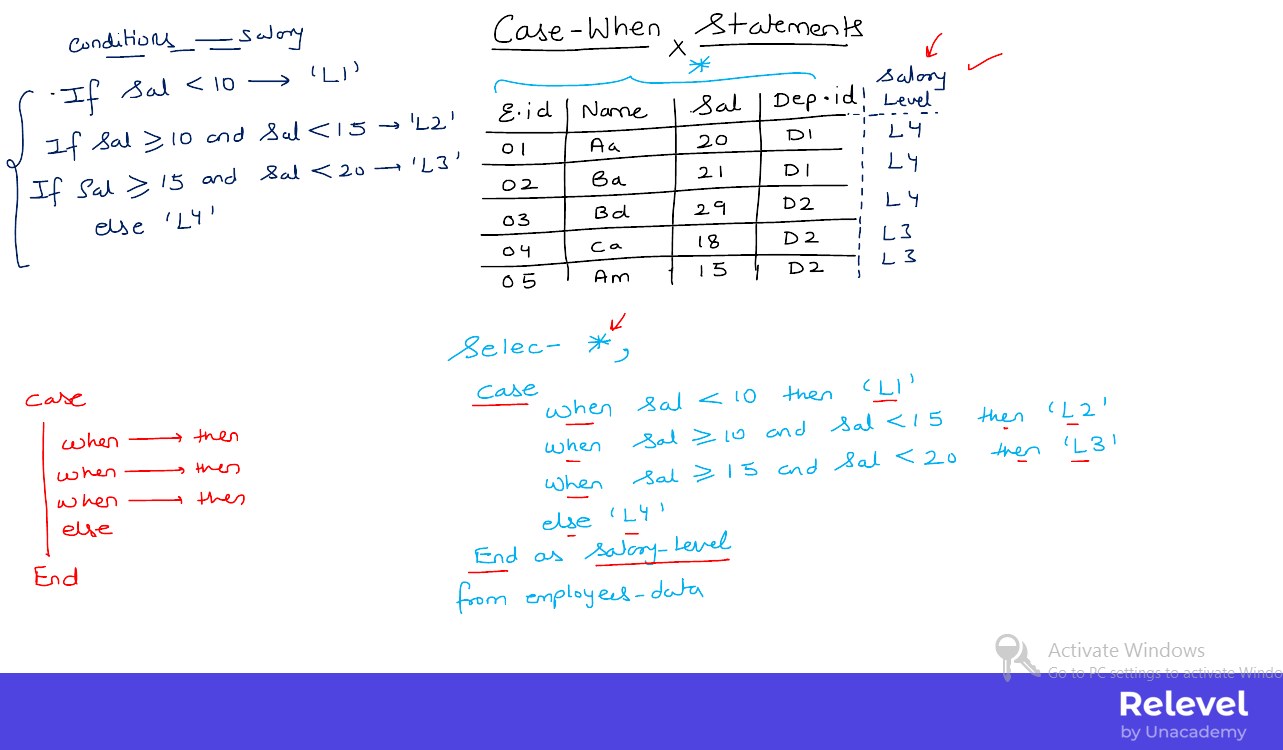 Case-When Statements
conditions - salary
If Sal < 10 → 'L1'
If Sal ≥ 10 and Sal < 15 → 'L2'
If Sal ≥ 15 and Sal < 20 → 'L3'
else 'L4'
*
E.id Name Sal Dep.id Salary Level
01 Aa 20 D1 L4
02 Ba 21 D1 L4
03 Bd 29 D2 L4
04 Ca 18 D2 L3
05 Am 15 D2 L3
Case
when → then
when → then
when → then
else
End
Selec- *,
Case
when Sal < 10 then 'L1'
when Sal ≥ 10 and Sal < 15 then 'L2'
when Sal ≥ 15 and Sal < 20 then 'L3'
else 'L4'
End as Salary-Level
from employees-data
Activate Windows
Go to PC settings to activate Windo
Relevel
by Unacademy